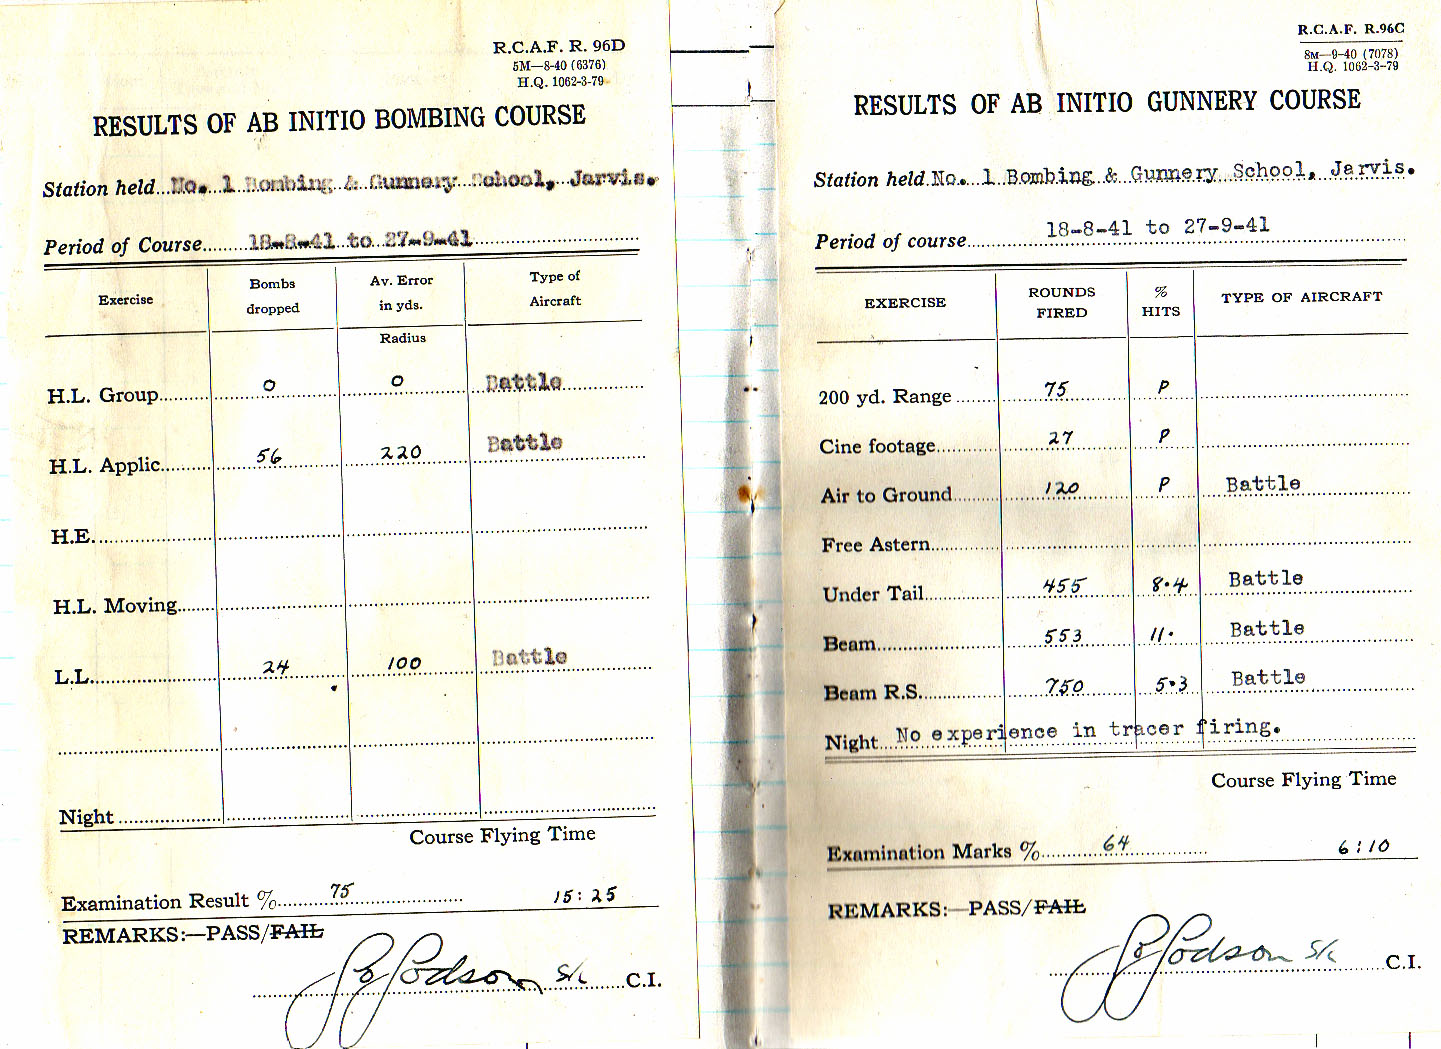 R.C.A.F. R. 96D
5M—8-40 (6376)
H.Q. 1062-3-79
RESULTS OF AB INITIO BOMBING COURSE
Station held...No. 1 Bombing & Gunnery School, Jarvis.
Period of Course........18-8-41 to 27-9-41
Exercise Bombs dropped Av. Error in yds. Type of Aircraft
Radius
H.L. Group.......... 0 0 Battle
H.L. Applic.......... 56 220 Battle
H.E.
H.L. Moving.......
L.L. 24 100 Battle
Night
Course Flying Time
Examination Result %...........75 15:25
REMARKS:—PASS/FAIL
S/L C.I.
R.C.A.F. R.96C
8M—9-40 (7078)
H.Q. 1062-3-79
RESULTS OF AB INITIO GUNNERY COURSE
Station held.No. 1 Bombing & Gunnery School, Jarvis.
Period of course 18-8-41 to 27-9-41
EXERCISE ROUNDS FIRED % HITS TYPE OF AIRCRAFT
200 yd. Range ........ 75 P
Cine footage............ 27 P
Air to Ground......... 120 P Battle
Free Astern
Under Tail 455 8.4 Battle
Beam 553 11. Battle
Beam R.S. 750 5.3 Battle
Night....No experience in tracer firing.
Course Flying Time
Examination Marks %............64 6:10
REMARKS:—PASS/FAIL
S/L C.I.